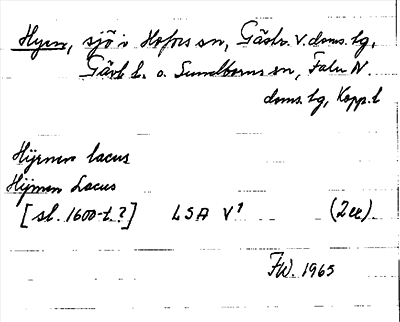 Hyen, sjö i Hofors sn, Gästr. V. doms. lg,
Gävl. l. o. Sundborns sn, Falu N.
doms. lg, Kopp. l
Hÿrnen lacus
Hijmen Lacus
[sl. 1600-t.?] LSA V¹ (2 ex).
FW. 1965